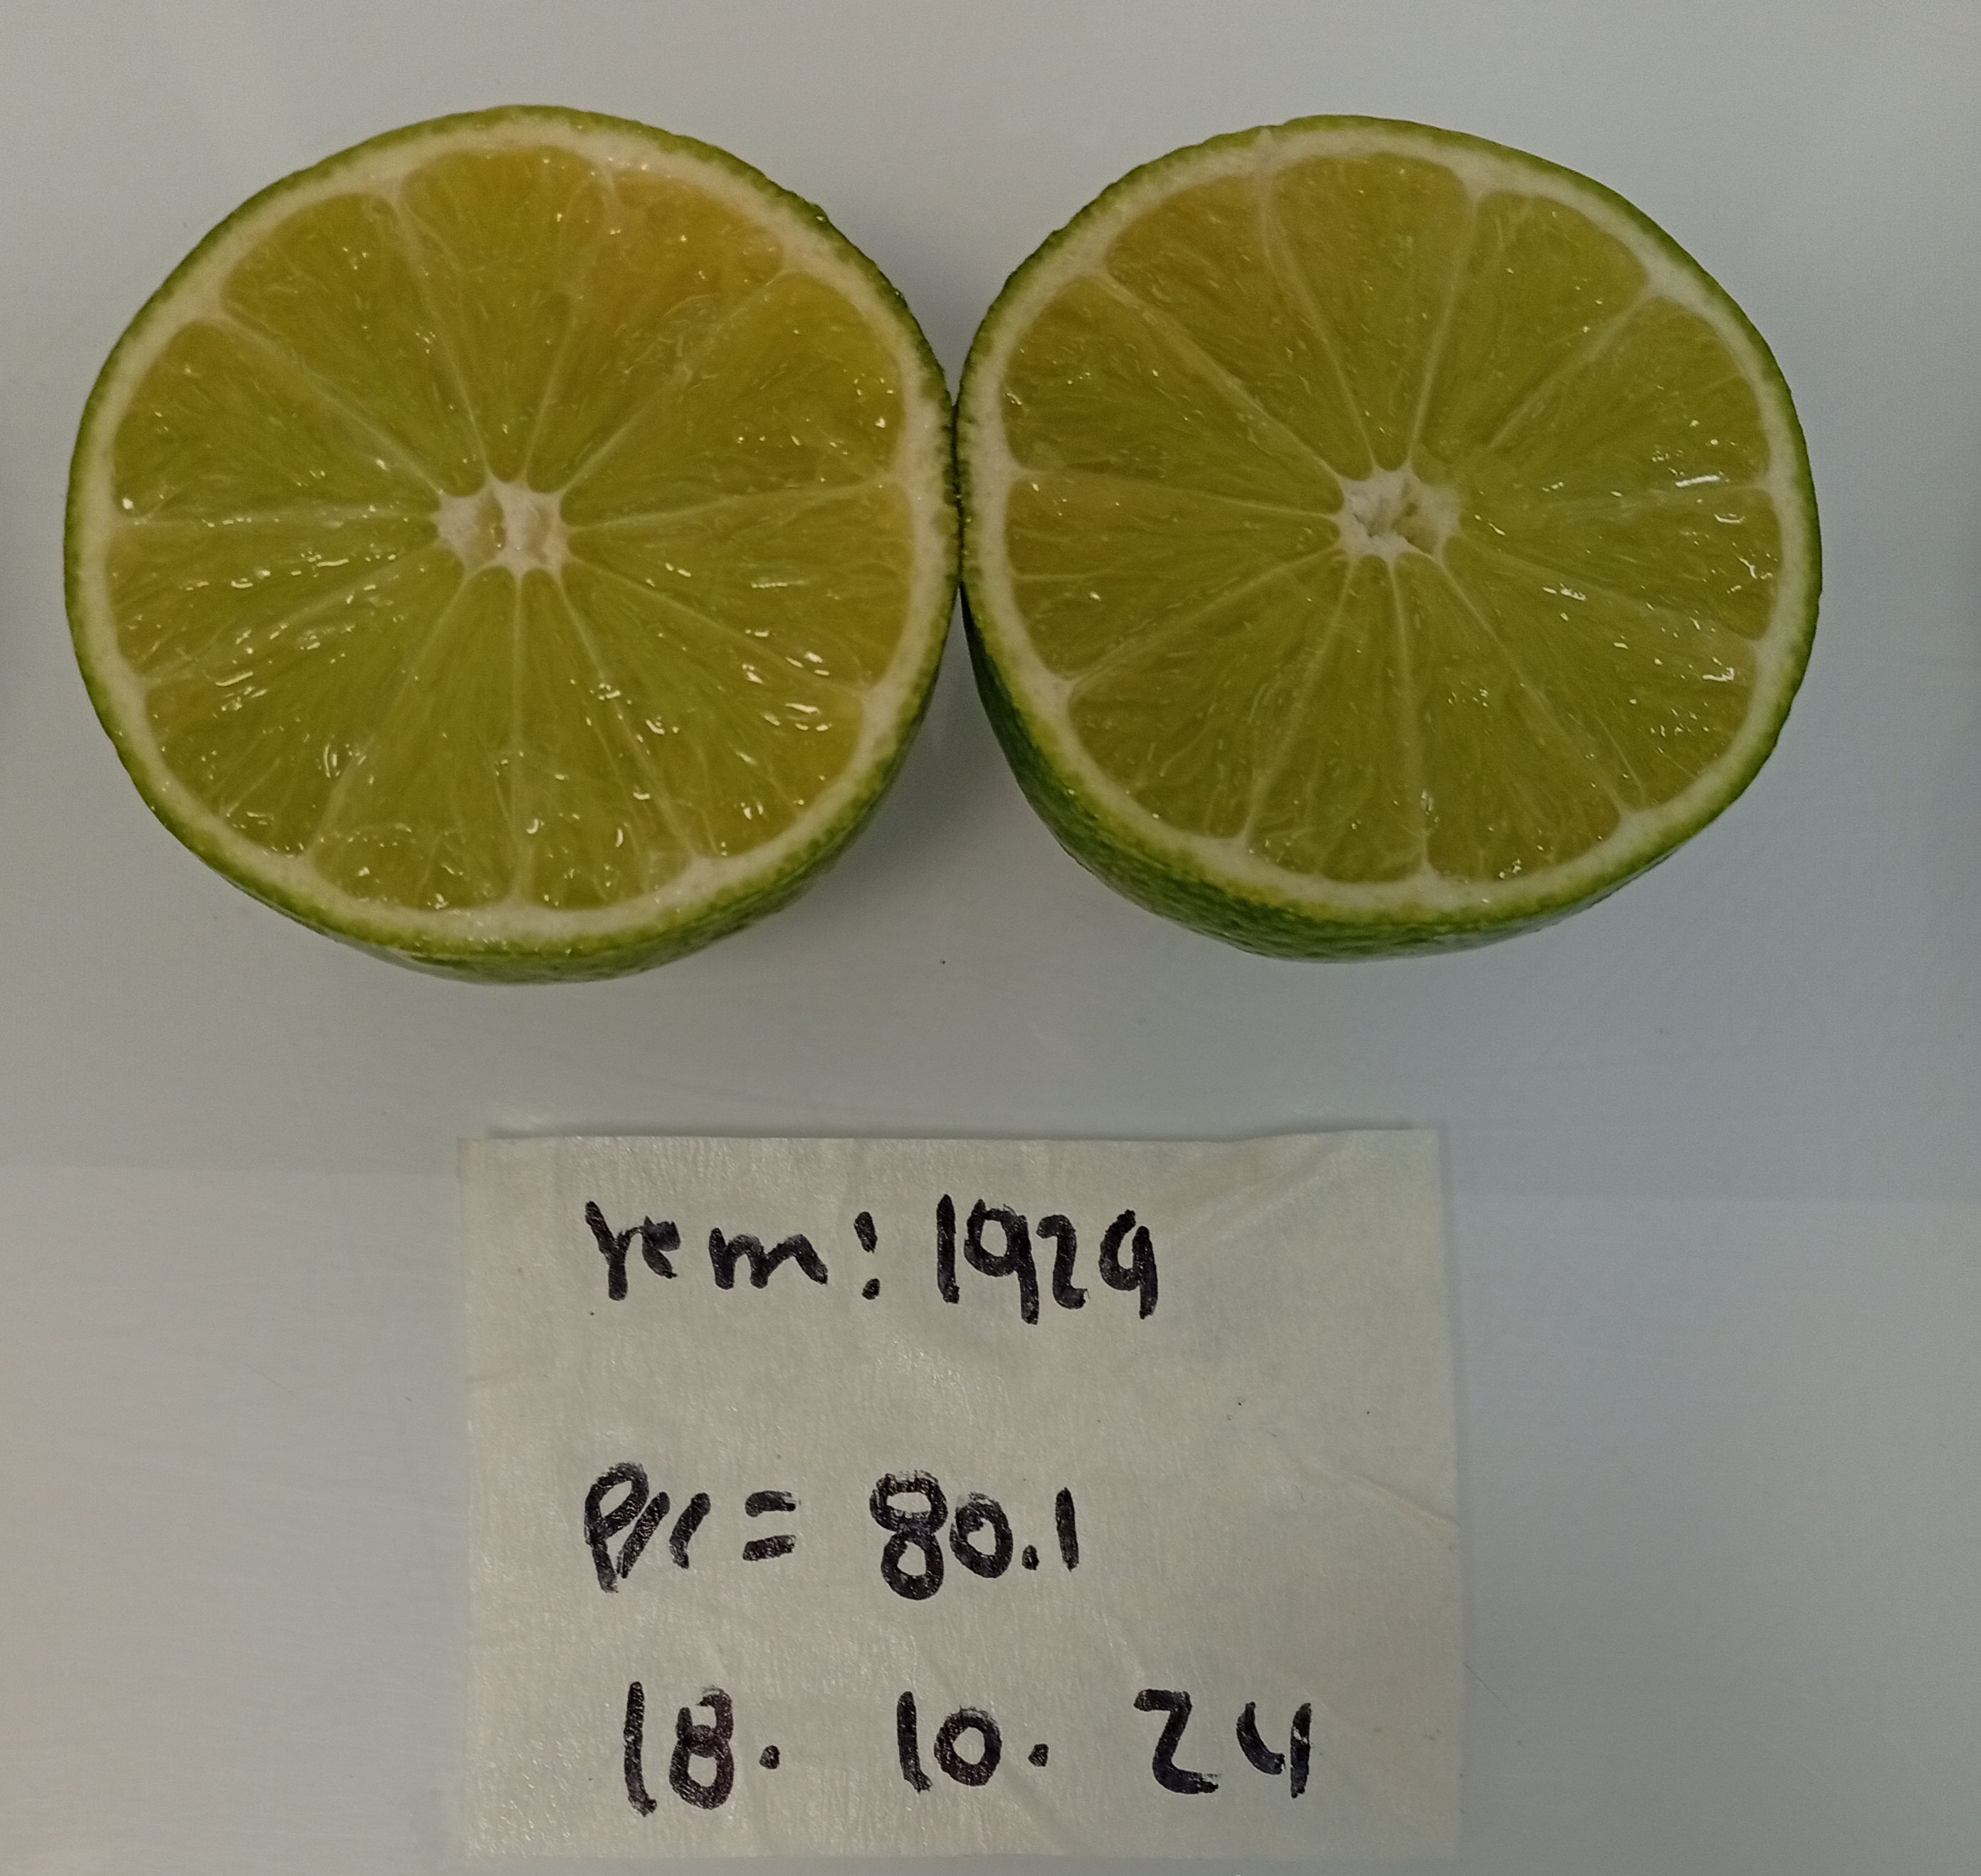 rem: 1929
Pπ = 80.1
18. 10. 24